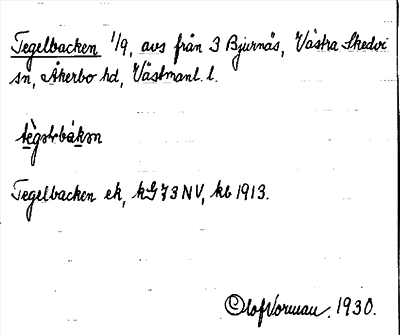 Tegelbacken 1/9, avs från 3 Bjurnäs, Västra Skedvi
sn, Åkerbo hd, Västmanl. l.
Tegelbacken ek, kG 73 NV, kb 1913.
Olof Norman. 1930.